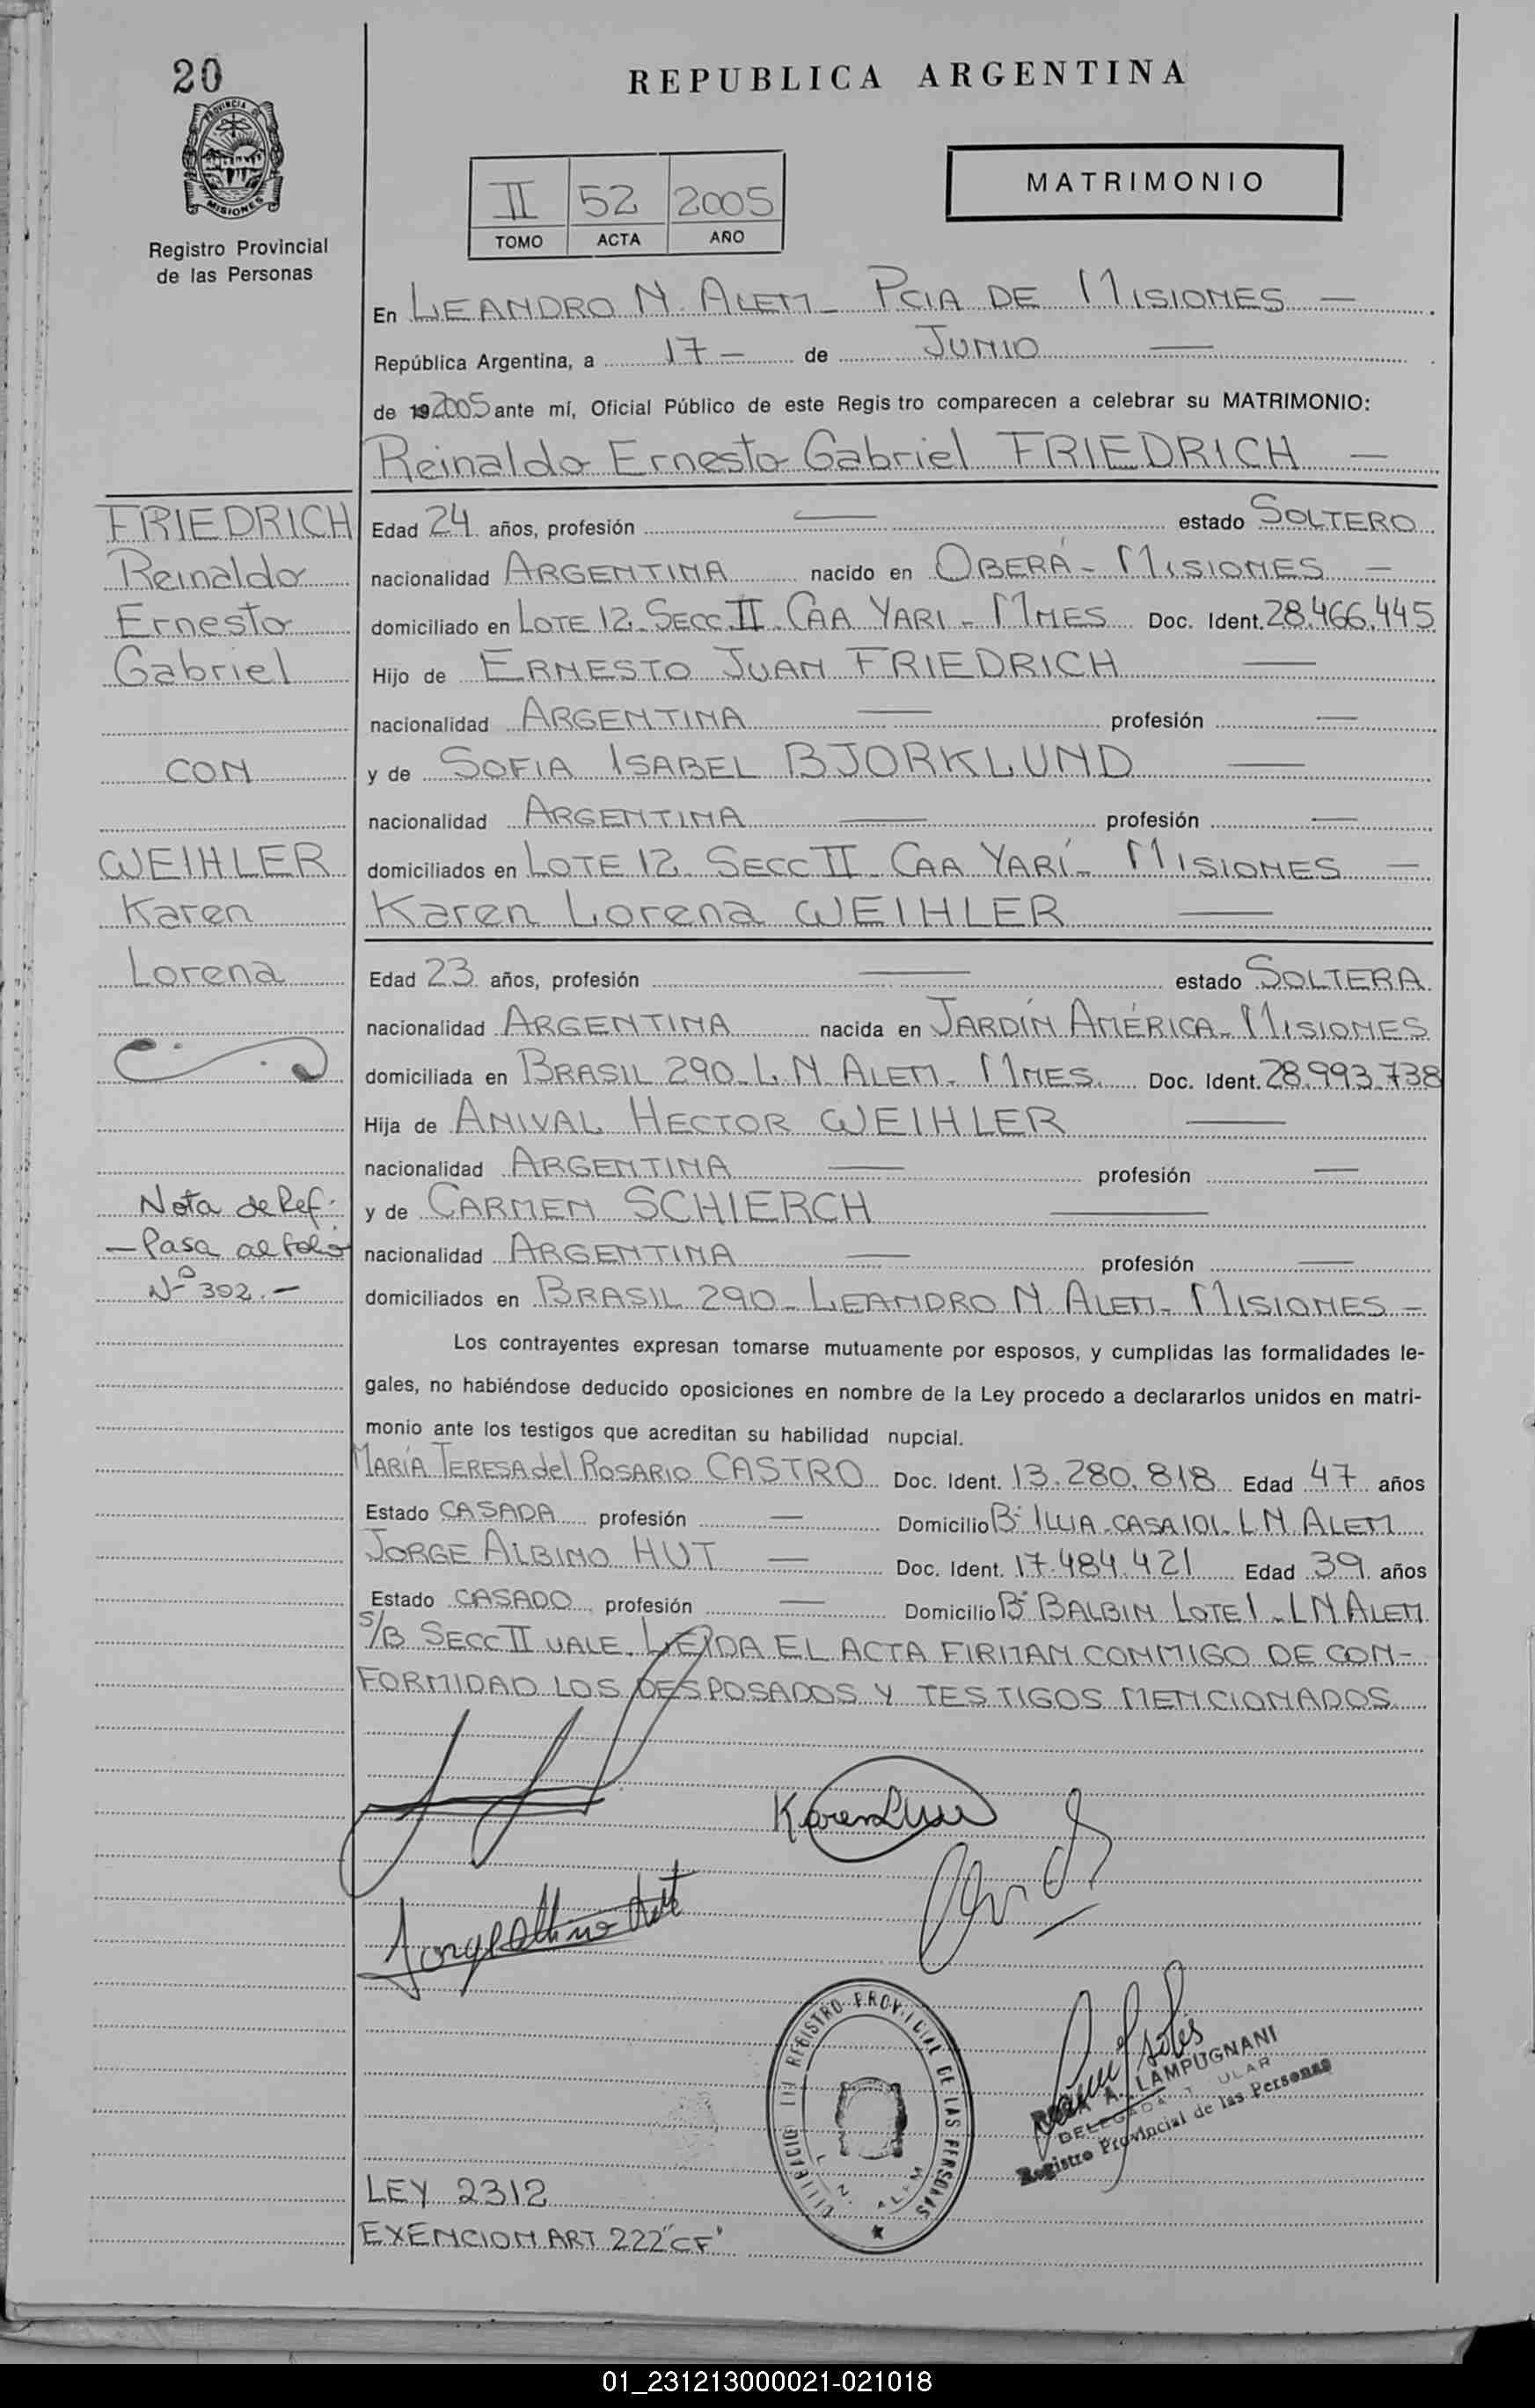 20
PROVINCIA DE
MISIONES
Registro Provincial
de las Personas
REPUBLICA ARGENTINA
II 52 2005
TOMO ACTA AÑO
MATRIMONIO
En LEANDRO N. ALEM - PCIA DE MISIONES —
República Argentina, a 17 — de JUNIO —
de 192005 ante mí, Oficial Público de este Regis tro comparecen a celebrar su MATRIMONIO:
Reinaldo Ernesto Gabriel FRIEDRICH —
Edad 24 años, profesión — estado SOLTERO
nacionalidad ARGENTINA nacido en OBERÁ - MISIONES —
domiciliado en LOTE 12 - SECC. II - CAA YARI - MNES Doc. Ident. 28.466.445
Hijo de ERNESTO JUAN FRIEDRICH —
nacionalidad ARGENTINA — profesión —
y de SOFIA ISABEL BJORKLUND —
nacionalidad ARGENTINA — profesión —
domiciliados en LOTE 12 - SECC II - CAA YARÍ - MISIONES —
Karen Lorena WEIHLER —
Edad 23 años, profesión — estado SOLTERA
nacionalidad ARGENTINA nacida en JARDÍN AMÉRICA - MISIONES
domiciliada en BRASIL 290 - L. N. ALEM - MNES. Doc. Ident. 28.993.738
Hija de ANIVAL HECTOR WEIHLER —
nacionalidad ARGENTINA — profesión —
y de CARMEN SCHIERCH —
nacionalidad ARGENTINA — profesión —
domiciliados en BRASIL 290 - LEANDRO N. ALEM - MISIONES —
Los contrayentes expresan tomarse mutuamente por esposos, y cumplidas las formalidades le-
gales, no habiéndose deducido oposiciones en nombre de la Ley procedo a declararlos unidos en matri-
monio ante los testigos que acreditan su habilidad nupcial.
MARÍA TERESA del ROSARIO CASTRO Doc. Ident. 13.280.818 Edad 47 años
Estado CASADA profesión — Domicilio B° ILLIA - CASA 101 - L N ALEM
JORGE ALBINO HUT — Doc. Ident. 17.484.421 Edad 39 años
Estado CASADO profesión — Domicilio B° BALBIN LOTE 1 - L N ALEM
S/B SECC II VALE. LEIDA EL ACTA FIRMAN CONMIGO DE CON-
FORMIDAD LOS DESPOSADOS Y TESTIGOS MENCIONADOS
FRIEDRICH
Reinaldo
Ernesto
Gabriel
CON
WEIHLER
Karen
Lorena
Nota de Ref:
- Pasa al folio
Nº 302.-
Karen
Jorge Albino Hut
REGISTRO PROVINCIAL DE LAS PERSONAS
L. N. ALEM
A. LAMPUGNANI
DELEGADA
Registro Provincial de las Personas
LEY 2312
EXENCION ART 222 "CF"
01_231213000021-021018